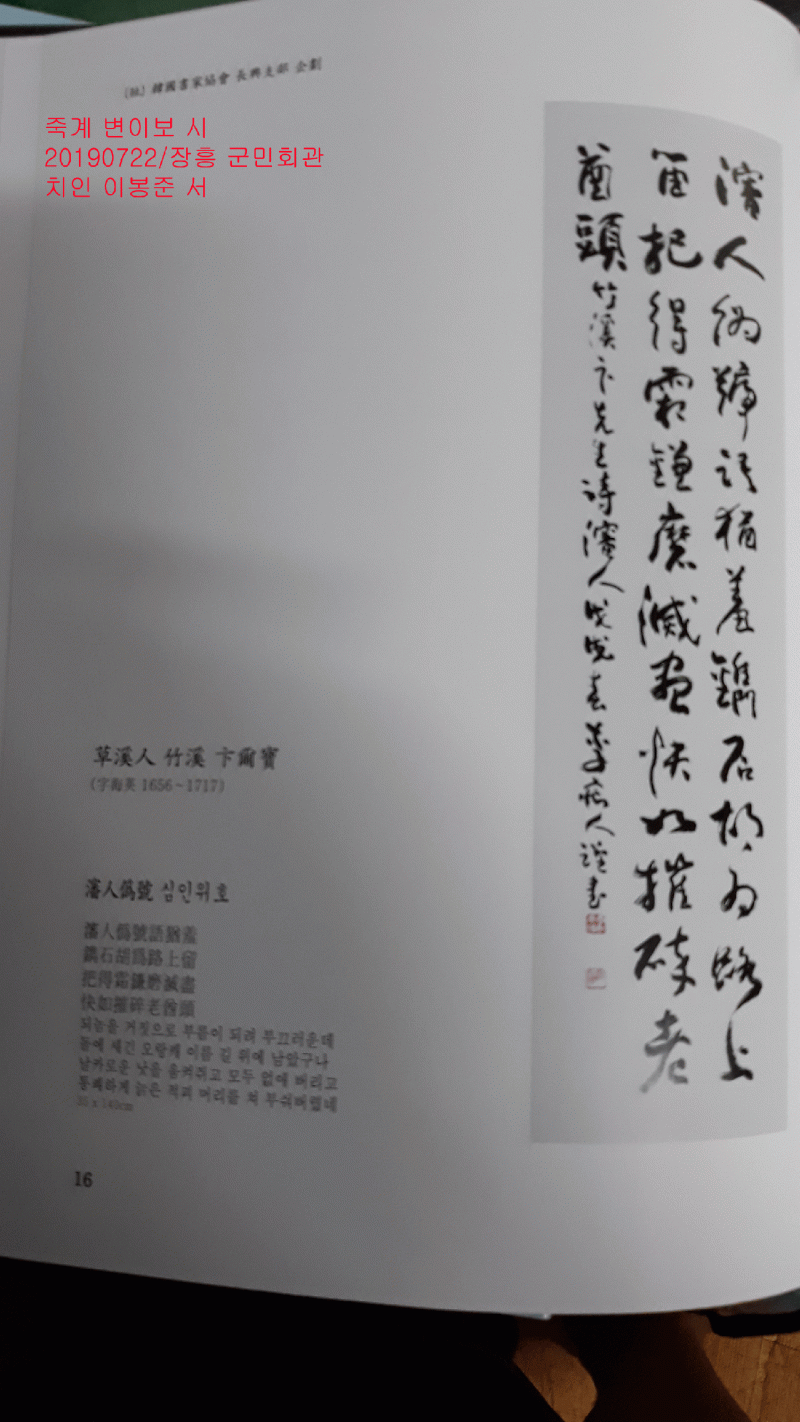 (社) 韓國書家協會 長興支部 企劃
죽계 변이보 시
20190722/장흥 군민회관
치인 이봉준 서
瀋人僞號語猶羞鐫石胡爲路上
留把得霜鎌磨滅盡快如摧碎老
酋頭
竹溪卞先生詩瀋人
草溪人 竹溪 卞爾寶
(字海英 1656~1717)
瀋人僞號 심인위호
瀋人僞號語猶羞
鐫石胡爲路上留
把得霜鎌磨滅盡
快如摧碎老酋頭
되놈을 거짓으로 부름이 되려 부끄러운데
돌에 새긴 오랑캐 이름 길 위에 남았구나
날카로운 낫을 움켜쥐고 모두 없애 버리고
통쾌하게 늙은 적괴 머리를 쳐 부숴버렸네
35 x 140cm
16